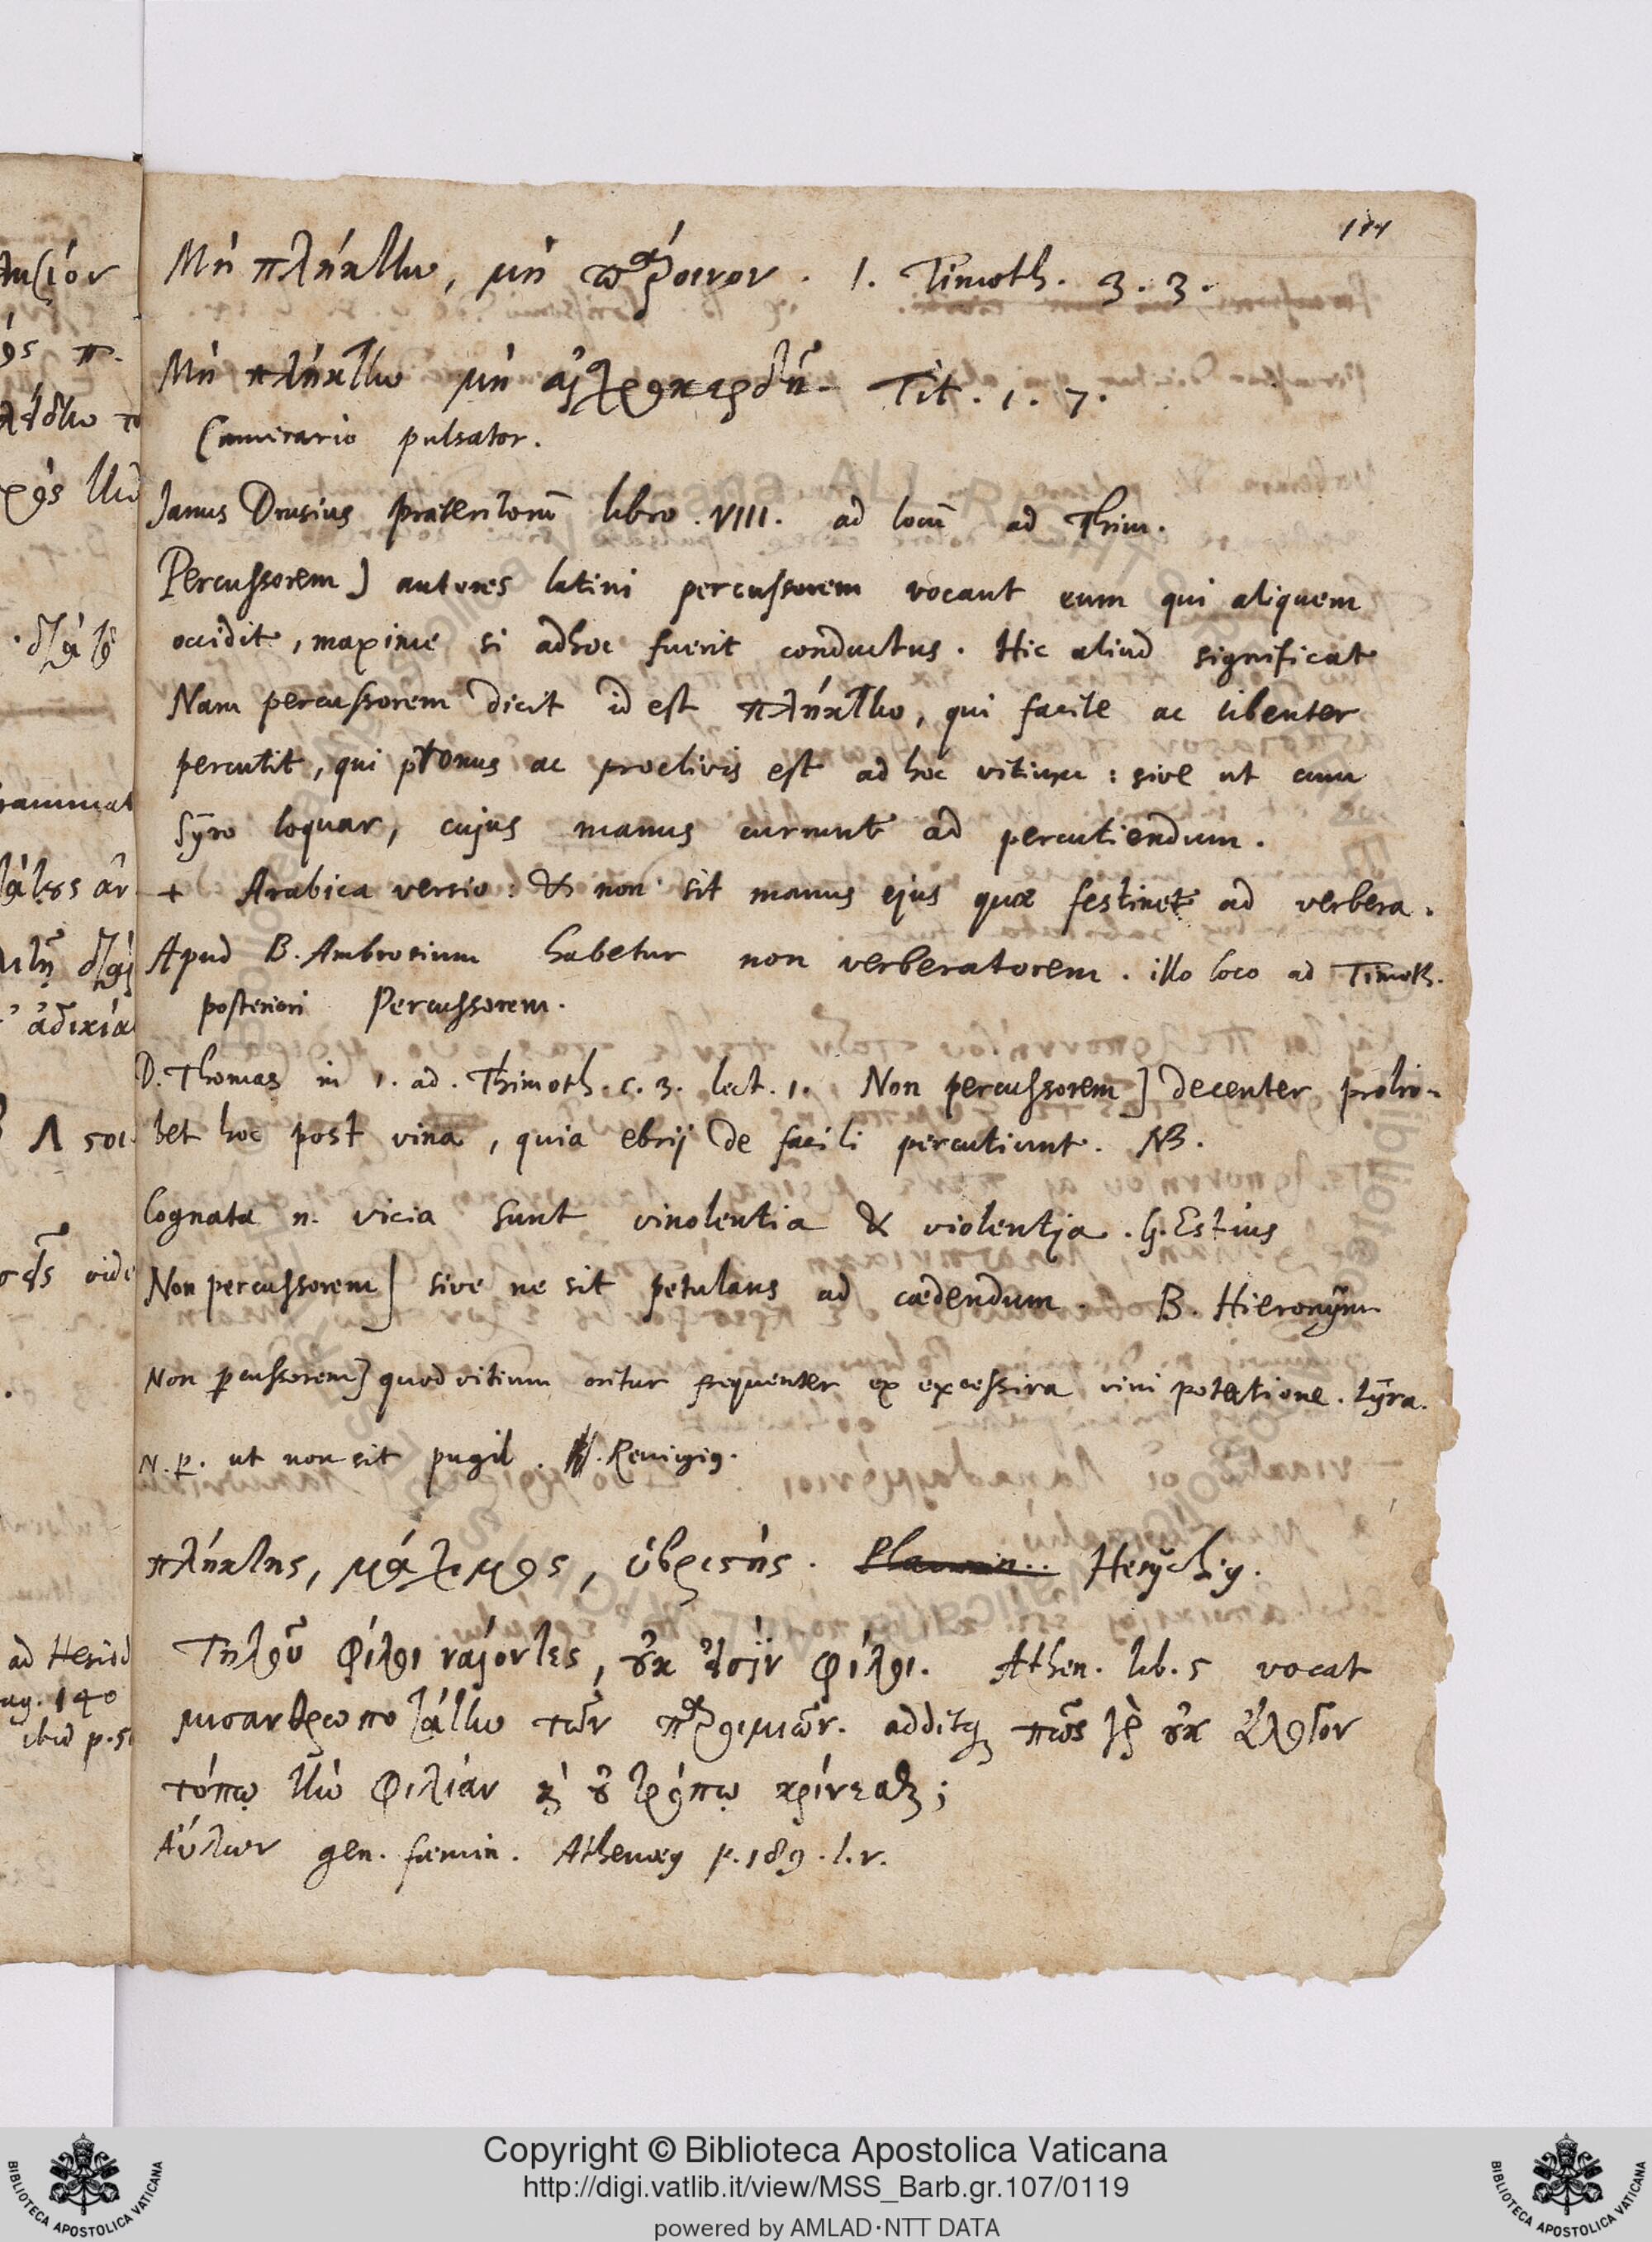 111
Μὴ πλήκτην, μὴ πάροινον. 1. Timoth. 3. 3.
Μὴ πλήκτην μὴ αἰσχροκερδῆ. Tit. 1. 7.
pulsator.
Janus Drusius præteritorū libro .VIII. ad locū ad Thim.
Percussorem] autores latini percussorem vocant eum qui aliquem
occidit, maxime si adhoc fuerit conductus. Hic aliud significat
Nam percussorem dicit id est πλήκτην, qui facile ac libenter
percutit, qui pronus ac proclivis est ad hoc vitium : sive ut cum
Syro loquar, cujus manus currunt ad percutiendum.
+ Arabica versio: & non sit manus ejus quæ festinet ad verbera.
Apud B. Ambrosium habetur non verberatorem. illo loco ad Timoth.
posteriori Percussorem.
D. Thomas in 1. ad. Thimoth. c. 3. lect. 1. Non percussorem] decenter prohi-
bet hoc post vina, quia ebrij de facili percutiunt. NB.
Cognata n. vicia sunt vinolentia & violentja. G. Estius
Non percussorem] sive ne sit petulans ad cædendum. B. Hieronym
Non pcussorem] quod vitium oritur frequenter ex excessiva vini potatione. Lyra.
N. p. ut non sit pugil. Remigi9.
πλήκτης, μάχιμος, ὑβριστής. Hesych9.
Τηλοῦ φίλοι ναίοντες, οὐκ εἰσὶν φίλοι. Athen. lib. 5 vocat
μισανθρωποτάτην τῶν παροιμιῶν. additq πῶς γὰρ οὐκ ἄλογον
τόπῳ τὴν φιλίαν καὶ οὐ τρόπῳ κρίνεσθαι;
Αὐλων gen. fœmin. Athenæ9 p. 189. l. v.
Copyright © Biblioteca Apostolica Vaticana
http://digi.vatlib.it/view/MSS_Barb.gr.107/0119
powered by AMLAD·NTT DATA
BIBLIOTECA APOSTOLICA VATICANA
BIBLIOTECA APOSTOLICA VATICANA